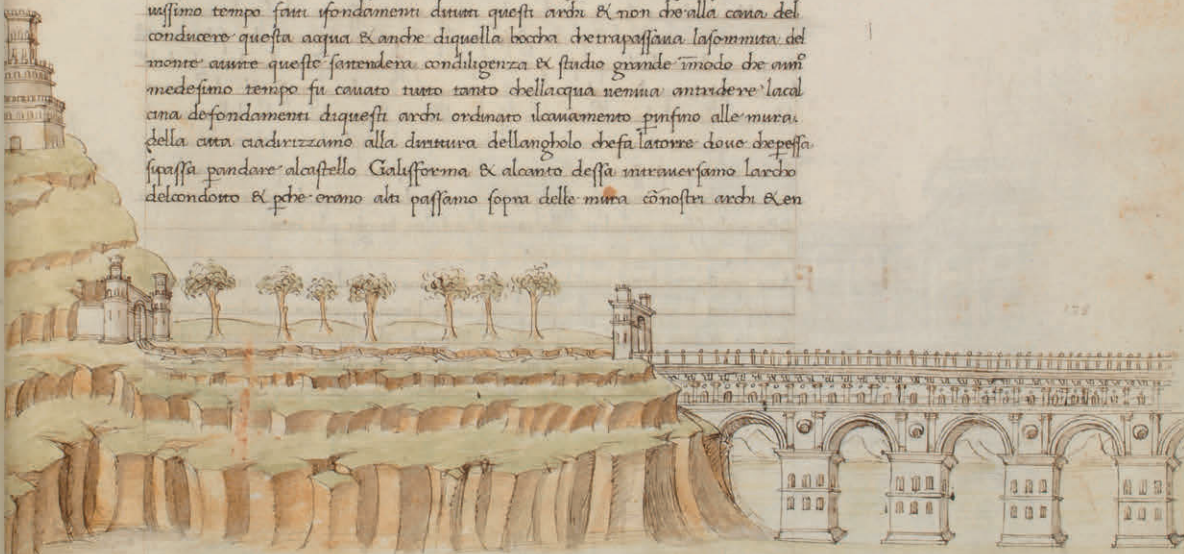 uissimo tempo fatti ifondamenti ditutti questi archi & non che alla caua del
conducere questa acqua & anche diquella boccha chetrapassaua lasommita del
monte aunte queste sattendera condiligenza & studio grande īmodo che aum̄
medesimo tempo fu cauato tutto tanto chellacqua ueniua antridere lacal
cina defondamenti diquesti archi ordinato ilcauamento ꝑinsino alle mura
della citta ciadirizzamo alla dirittura dellangholo chefa latorre doue cheꝑessa
sipassa ꝑandare alcastello Galisforma & alcanto dessa intrauersamo larcho
delcondotto & ꝑche erano alti passamo sopra delle mura cōnostri archi & en